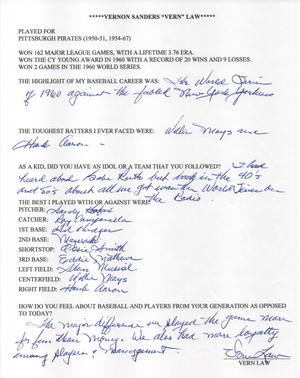 *****VERNON SANDERS "VERN" LAW*****
PLAYED FOR
PITTSBURGH PIRATES (1950-51, 1954-67)
WON 162 MAJOR LEAGUE GAMES, WITH A LIFETIME 3.76 ERA.
WON THE CY YOUNG AWARD IN 1960 WITH A RECORD OF 20 WINS AND 9 LOSSES.
WON 2 GAMES IN THE 1960 WORLD SERIES.
THE HIGHLIGHT OF MY BASEBALL CAREER WAS: The World Series
of 1960 against the fabled New York Yankees
THE TOUGHEST BATTERS I EVER FACED WERE: Willie Mays and
Hank Aaron -
AS A KID, DID YOU HAVE AN IDOL OR A TEAM THAT YOU FOLLOWED? I had
heard about Babe Ruth but back in the 40's
and 50's about all we got was the World Series on
the Radio.
THE BEST I PLAYED WITH OR AGAINST WERE:
PITCHER: Sandy Koufax
CATCHER: Roy Campanella
1ST BASE: Gil Hodges
2ND BASE: Mazeroski
SHORTSTOP: Ozzie Smith
3RD BASE: Eddie Mathews
LEFT FIELD: Stan Musial
CENTERFIELD: Willie Mays
RIGHT FIELD: Hank Aaron
HOW DO YOU FEEL ABOUT BASEBALL AND PLAYERS FROM YOUR GENERATION AS OPPOSED
TO TODAY?
The major difference we played the game more
for fun than money. We also had more loyalty
among players & management.
Vern Law
VERN LAW